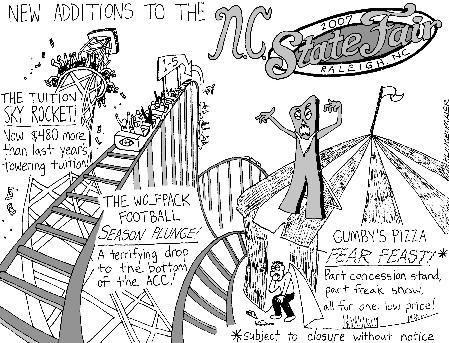 NEW ADDITIONS TO THE
N.C. State Fair
2007
RALEIGH, NC
1-5
THE TUITION
SKY ROCKET!
Now $480 more
than last years
towering tuition!
THE WOLFPACK
FOOTBALL
SEASON PLUNGE!
A terrifying drop
to the bottom
of the ACC!
GUMBY'S PIZZA
FEAR FEAST!*
Part concession stand,
part freak show,
all for one low price!
*subject to closure without notice